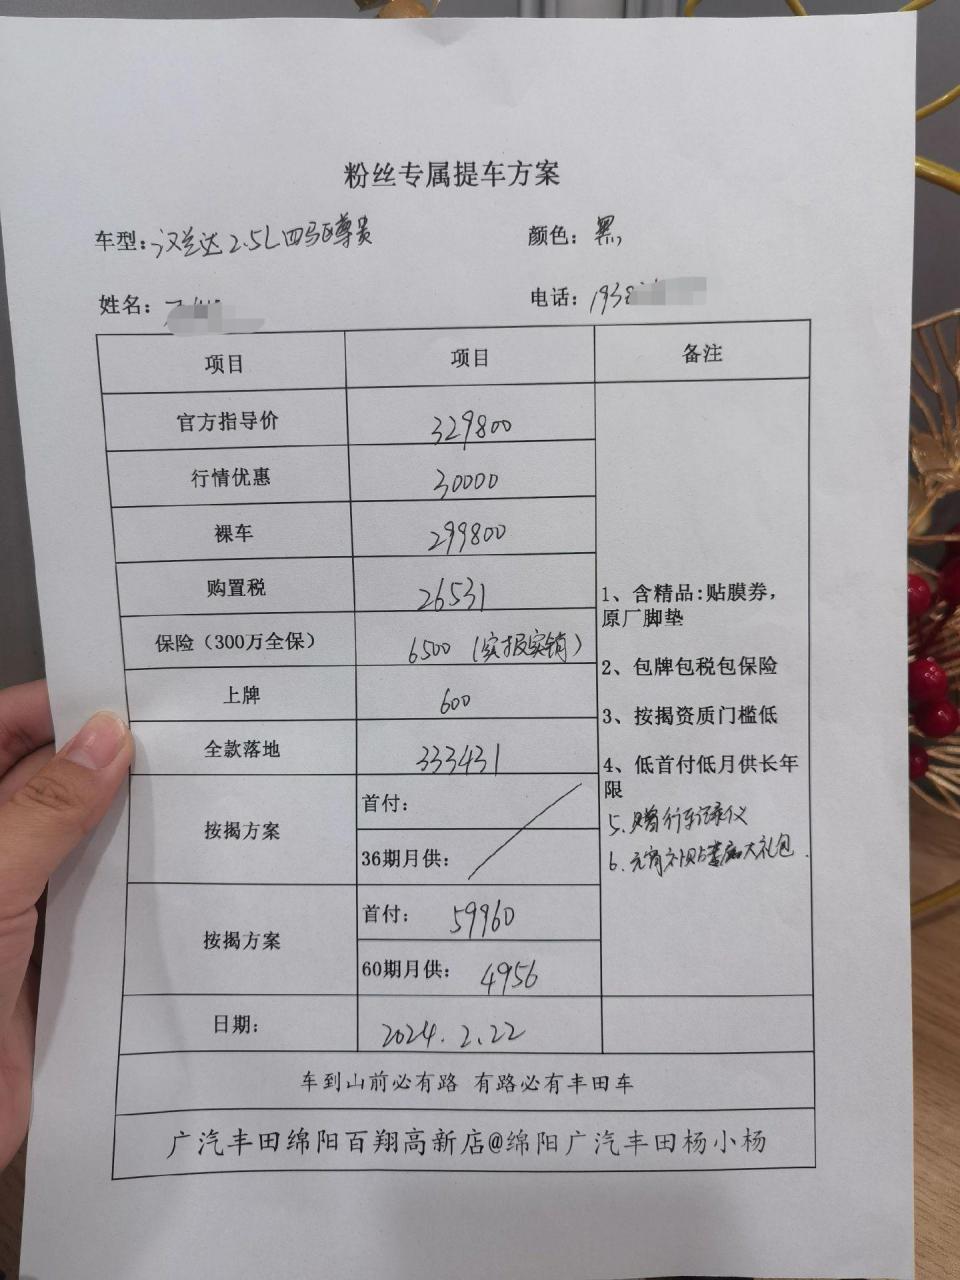 粉丝专属提车方案
车型:汉兰达2.5L四驱尊贵
颜色:黑
姓名:
电话:1938
项目
项目
备注
官方指导价
329800
行情优惠
30000
裸车
299800
购置税
26531
保险（300万全保）
6500（实报实销）
上牌
600
全款落地
333431
按揭方案
首付:
36期月供:
按揭方案
首付: 59960
60期月供: 4956
1、含精品:贴膜券,
原厂脚垫
2、包牌包税包保险
3、按揭资质门槛低
4、低首付低月供长年
限
5.赠行车记录仪
6.元宵补贴大礼包.
日期:
2024.2.22
车到山前必有路 有路必有丰田车
广汽丰田绵阳百翔高新店@绵阳广汽丰田杨小杨